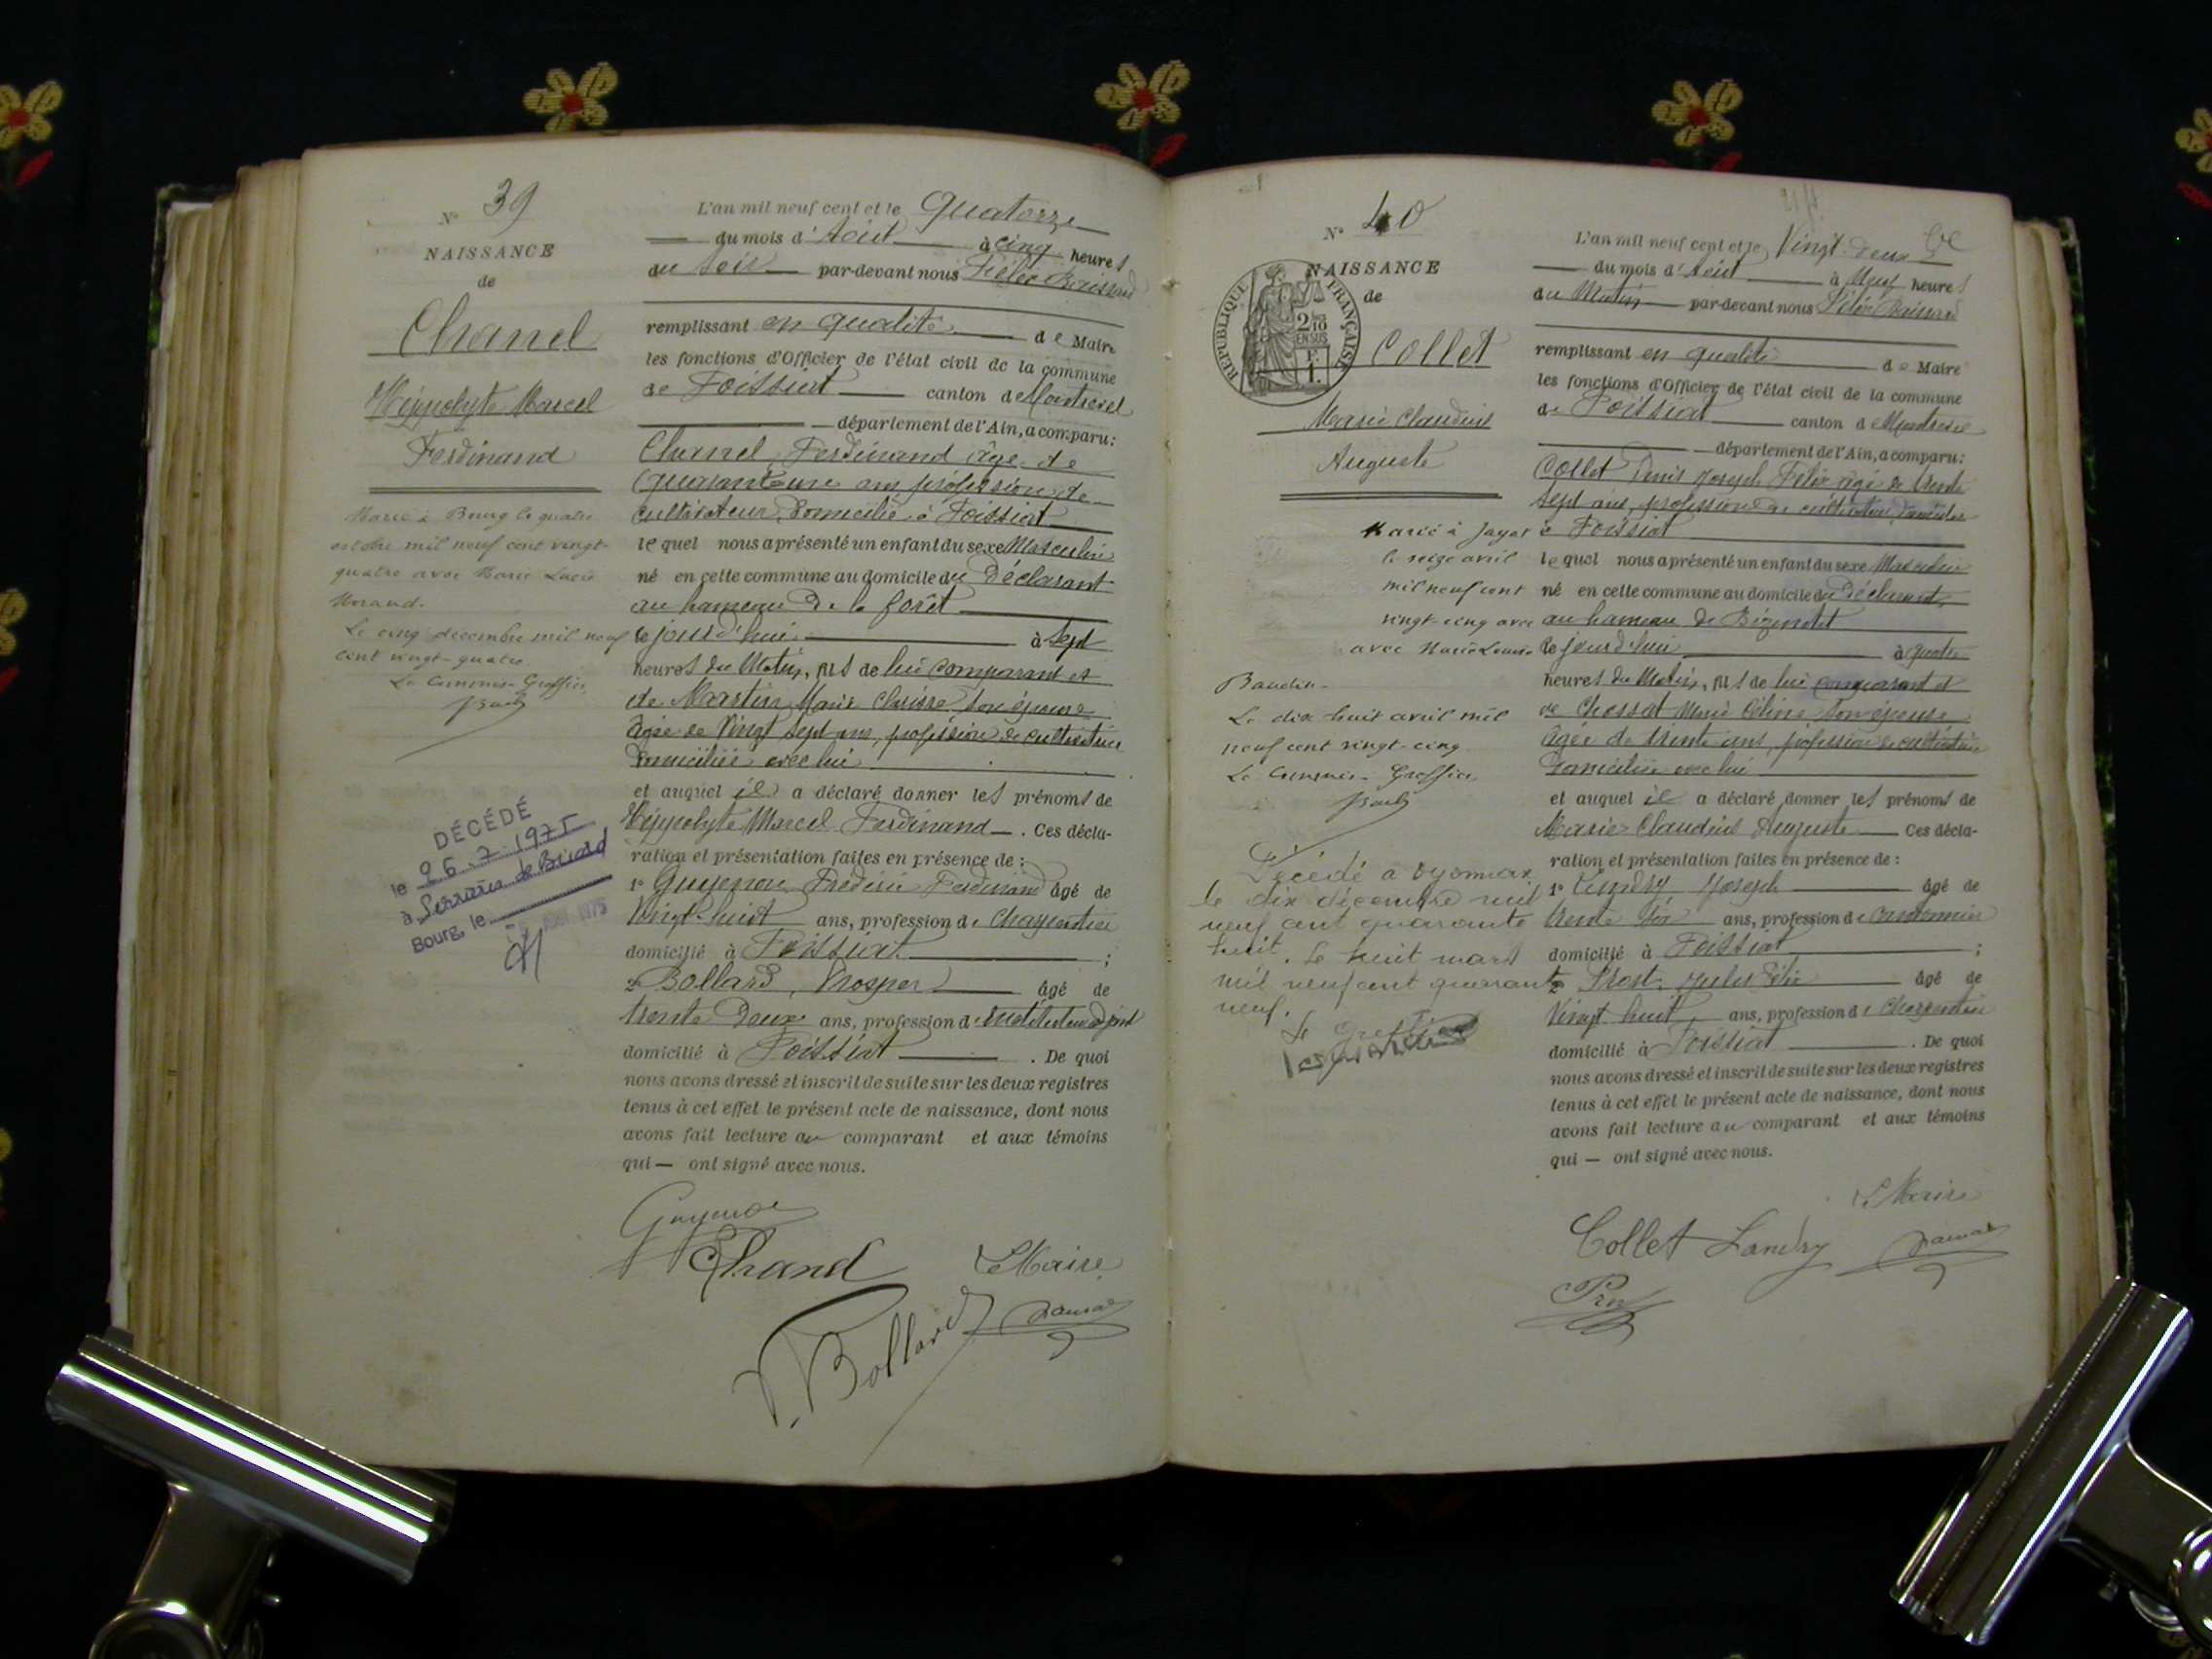 N° 39
NAISSANCE
de
Chanel
Hippolyte Marcel
Ferdinand
Marié à Bourg le quatre
octobre mil neuf cent vingt-
quatre avec Marie Lucie
Morand.
Le cinq décembre mil neuf
cent vingt-quatre
Le Commis-Greffier
DÉCÉDÉ
le 26.7.1975
à
Bourg, le
L'an mil neuf cent et le quatorze
du mois d'Août à cinq heures
du soir par-devant nous Félix
remplissant en qualité de Maire
les fonctions d'Officier de l'état civil de la commune
de Foissiat canton de Montrevel
département de l'Ain, a comparu:
Chanel Ferdinand âgé de
quarante un ans profession de
cultivateur, domicilié à Foissiat
lequel nous a présenté un enfant du sexe Masculin
né en cette commune au domicile du Déclarant
au hameau de la forêt
le jourd'hui à sept
heures du Matin, fils de lui comparant et
de Martin Marie son épouse
âgée de Vingt sept ans, profession de cultivatrice
domiciliée avec lui
et auquel il a déclaré donner les prénoms de
Hippolyte Marcel Ferdinand. Ces décla-
ration et présentation faites en présence de :
1° Guyenon Frédéric Ferdinand âgé de
Vingt-huit ans, profession de Charpentier
domicilié à Foissiat ;
2° Bollard, Prosper âgé de
trente Deux ans, profession d'instituteur adjoint
domicilié à Foissiat. De quoi
nous avons dressé et inscrit de suite sur les deux registres
tenus à cet effet le présent acte de naissance, dont nous
avons fait lecture au comparant et aux témoins
qui — ont signé avec nous.
Guyenon
Le Maire
P. Bollard
N° 40
NAISSANCE
de
RÉPUBLIQUE FRANÇAISE
2/10
EN SUS
F.
1.
Collet
Marie Claudius
Auguste
Marié à Jayat
le seize avril
mil neuf cent
vingt-cinq avec
avec Marie Louise
Baudin
Le dix huit avril mil
neuf cent vingt-cinq
Le Commis-Greffier
Décédé à Oyonnax
le dix décembre mil
neuf cent quarante
huit. Le huit mars
mil neuf cent quarante
neuf.
Le Greffier
L'an mil neuf cent et le Vingt-deux
du mois d'Août à Neuf heures
du Matin par-devant nous Félix
remplissant en qualité de Maire
les fonctions d'Officier de l'état civil de la commune
de Foissiat canton de Montrevel
département de l'Ain, a comparu:
Collet Denis Joseph Félix âgé de trente
sept ans, profession de cultivateur, domicilié
à Foissiat
lequel nous a présenté un enfant du sexe Masculin
né en cette commune au domicile du Déclarant
au hameau de
le jourd'hui à quatre
heures du Matin, fils de lui comparant et
de Chossat Marie Céline son épouse
âgée de trente ans, profession de cultivatrice
domiciliée avec lui
et auquel il a déclaré donner les prénoms de
Marie Claudius Auguste Ces décla-
ration et présentation faites en présence de :
1° Landry Joseph âgé de
trente six ans, profession de
domicilié à Foissiat ;
2° Prost, Jules Félix âgé de
Vingt huit ans, profession de Charpentier
domicilié à Foissiat. De quoi
nous avons dressé et inscrit de suite sur les deux registres
tenus à cet effet le présent acte de naissance, dont nous
avons fait lecture au comparant et aux témoins
qui — ont signé avec nous.
Le Maire
Collet Landry